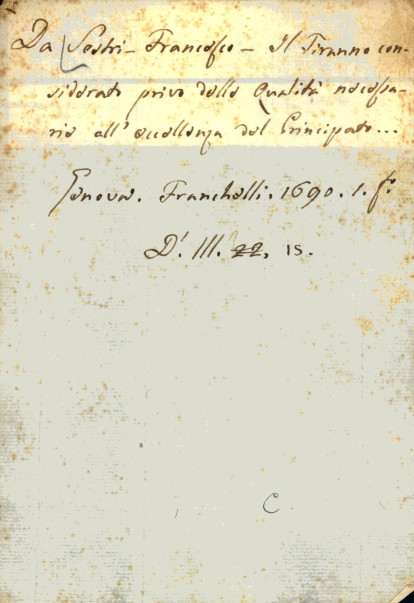 Da Sestri - Francesco - Il Tiranno con-
siderato privo delle Qualità necessa-
rie all' eccellenza del Principato...
Genova. Franchelli. 1690. 1. f.
D'. III. 22, 15.
C